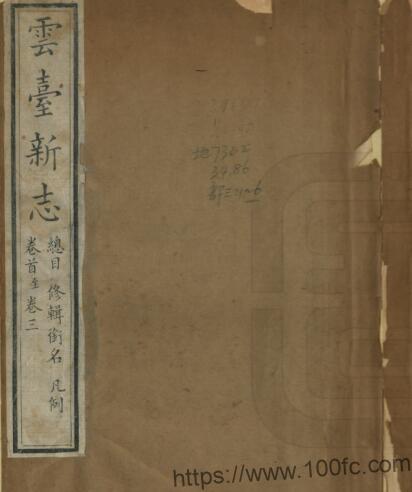 雲臺新志
總目 修輯銜名 凡例
卷首至卷三
地7302
34.86
https://www.100fc.com